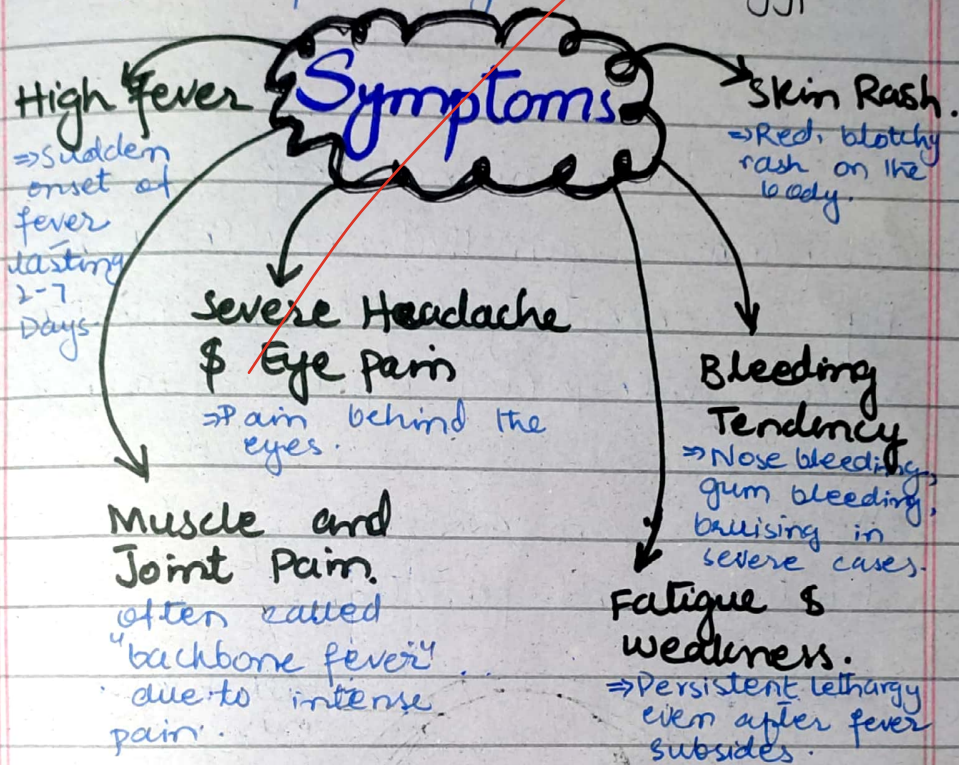 Symptoms
High fever
⇒Sudden
onset of
fever
lasting
2-7
Days
Skin Rash.
⇒Red, blotchy
rash on the
body.
Severe Headache
& Eye Pain
⇒Pain behind the
eyes.
Bleeding
Tendency
⇒Nose bleeding,
gum bleeding,
bruising in
severe cases.
Muscle and
Joint Pain.
often called
"backbone fever"
due to intense
pain.
Fatigue &
weakness.
⇒Persistent lethargy
even after fever
subsides.